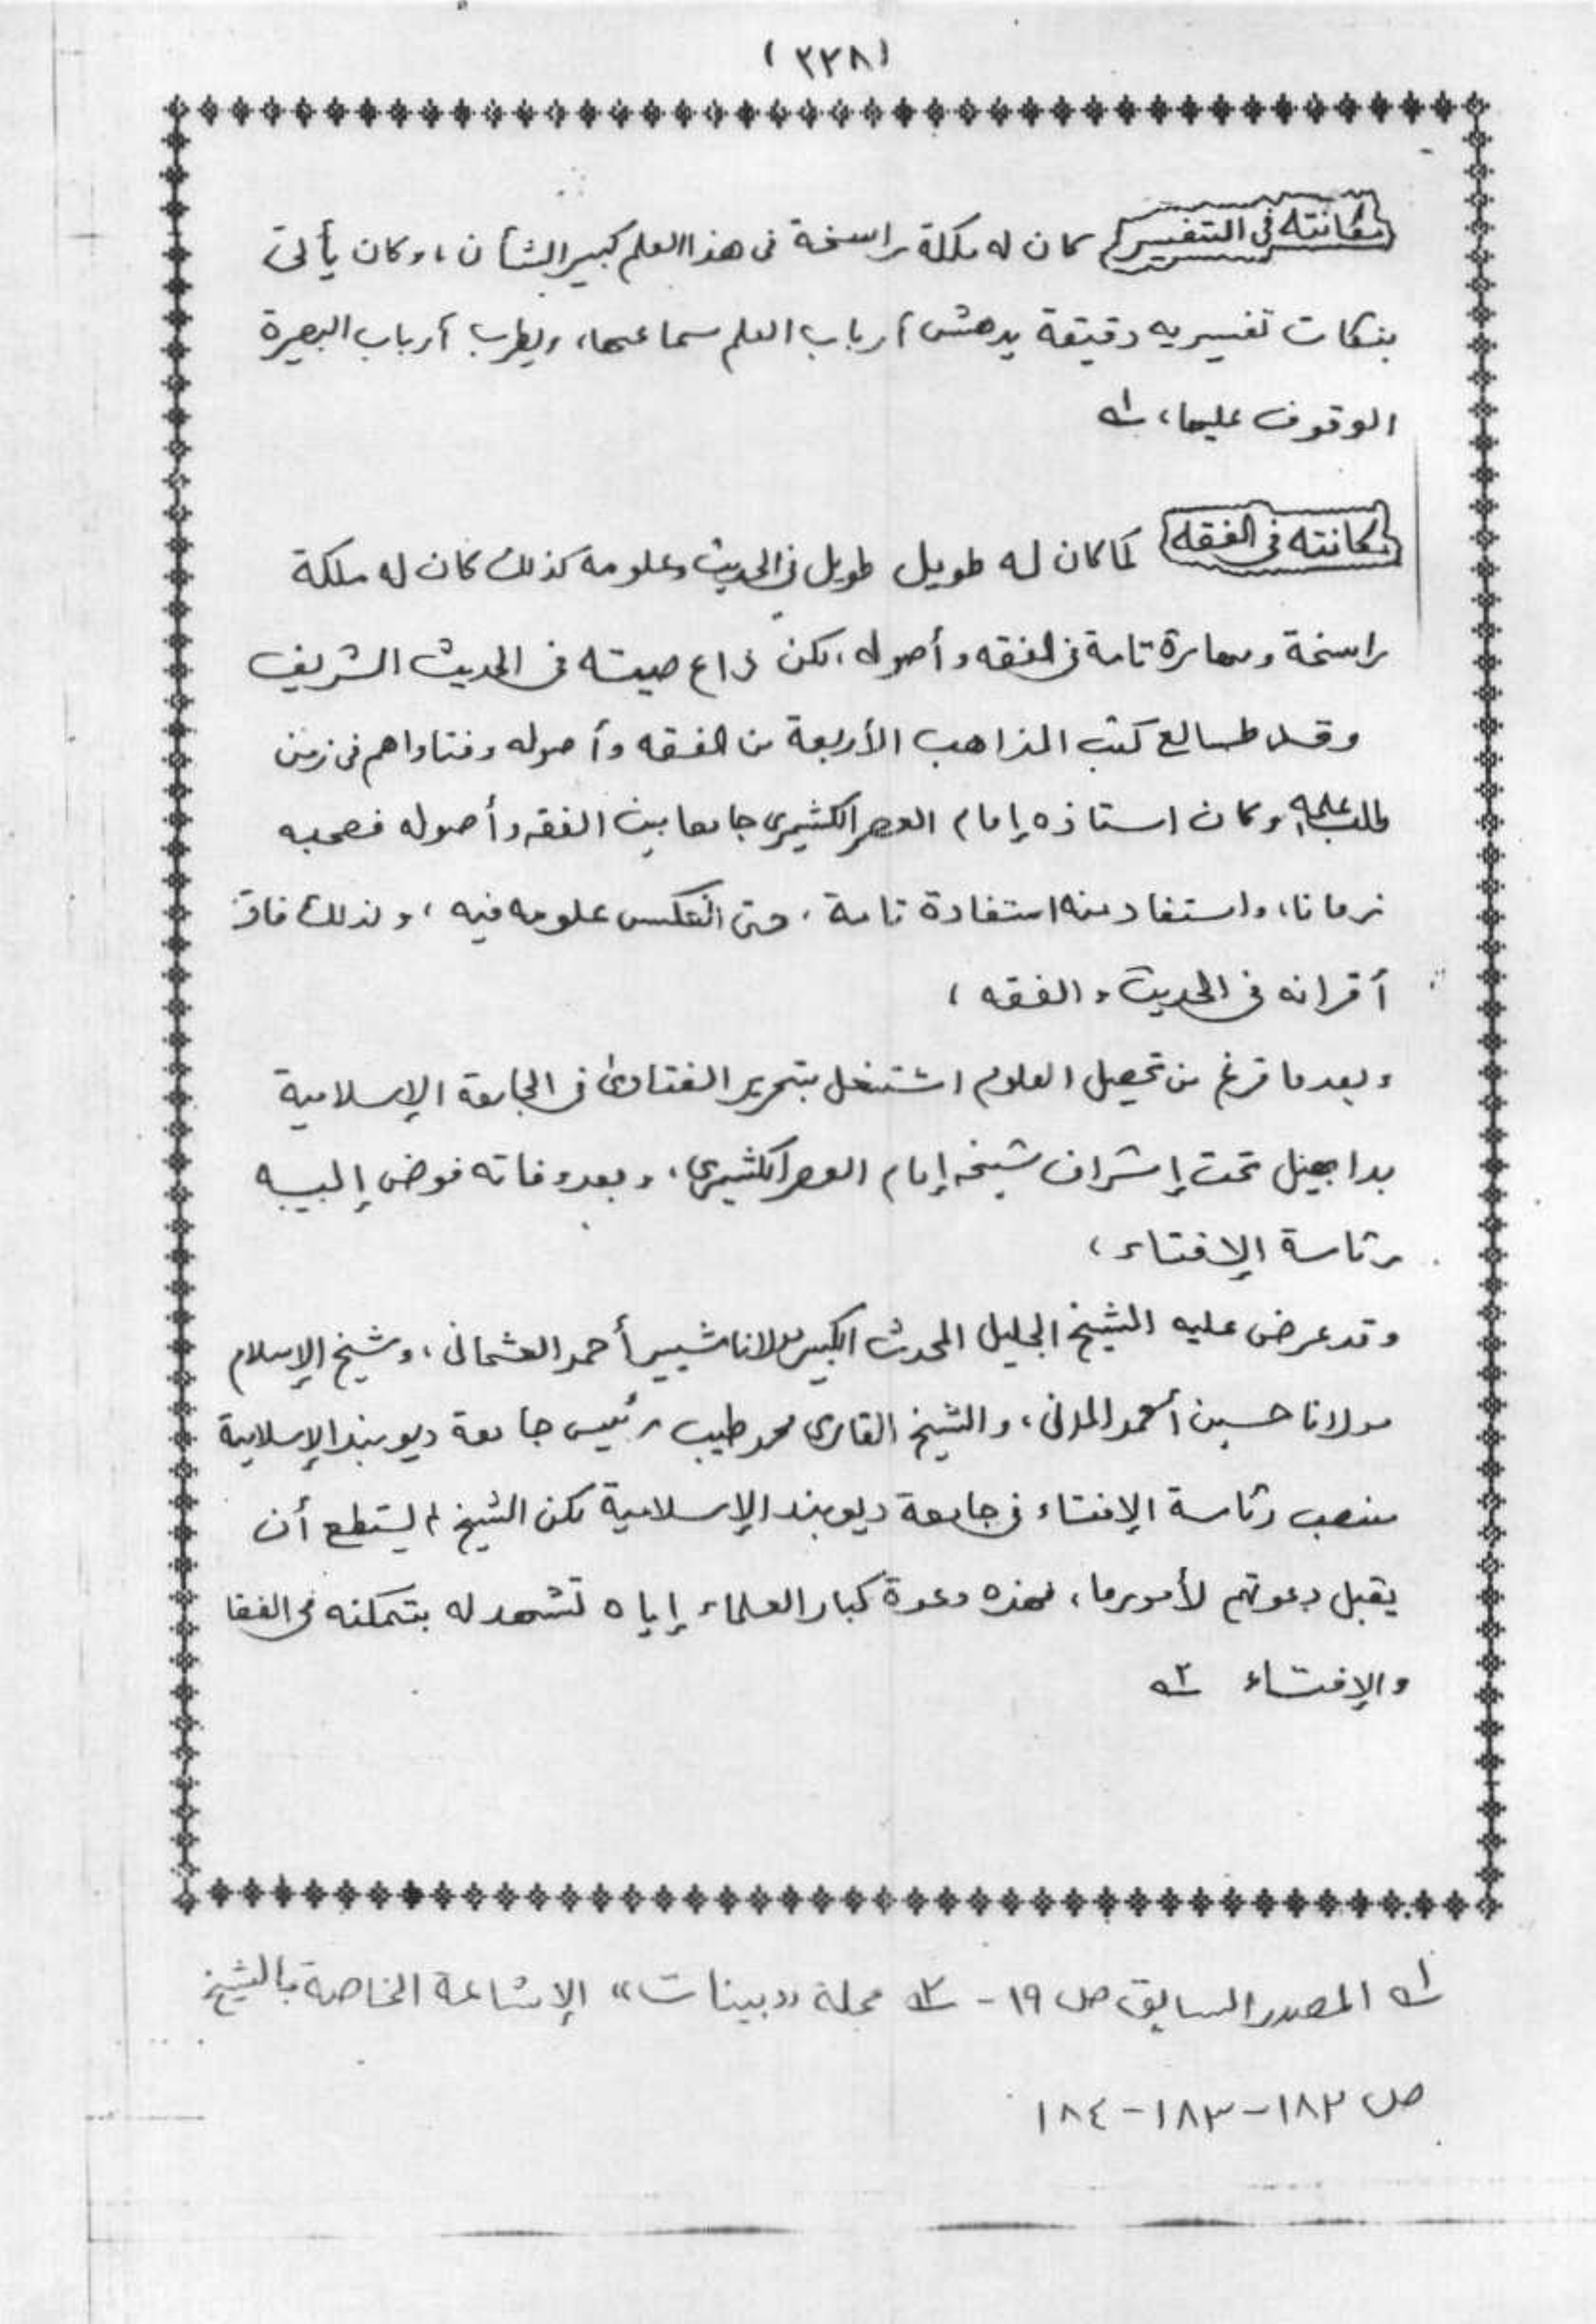 (٣٢٨)
مكانته في التفسير كان له ملكة راسخة في هذا العلم كبير الشأن، وكان يأتي
بنكات تفسيريه دقيقة يدهش أرباب العلم سماعها، ويطرب أرباب البصيرة
الوقوف عليها، ١ھ
مكانته في الفقه كما كان له طويل طويل في الحديث وعلومه كذلك كان له ملكة
راسخة ومهارة تامة في الفقه وأصوله، لكن ذاع صيته في الحديث الشريف
وقد طالع كتب المذاهب الأربعة من الفقه وأصوله وفتاواهم في زمن
طلب علمه، وكان استاذه إمام العصر الكشميري جامعا بين الفقه وأصوله فصحبه
زمانا، واستفاد منه استفادة تامة، حتى انعكس علومه فيه، ولذلك فاق
أقرانه في الحديث والفقه،
وبعد ما فرغ من تحصيل العلوم اشتغل بتحرير الفتاوى في الجامعة الإسلامية
بدابهيل تحت إشراف شيخه إمام العصر الكشميري، وبعد وفاته فوض إليه
رئاسة الإفتاء،
وقد عرض عليه الشيخ الجليل المحدث الكبير مولانا شبير أحمد العثماني، وشيخ الإسلام
مولانا حسين أحمد المدني، والشيخ القاري محمد طيب رئيس جامعة ديوبند الإسلامية
منصب رئاسة الإفتاء في جامعة ديوبند الإسلامية لكن الشيخ لم يستطع أن
يقبل دعوتهم لأمور ما، فهذه دعوة كبار العلماء إياه تشهد له بتمكنه في الفقا
والإفتاء ٢ھ
١ھ المصدر السابق ص ١٩ - ٢ھ مجلة «بينات» الإشاعة الخاصة بالشيخ
ص ١٨٢-١٨٣-١٨٤